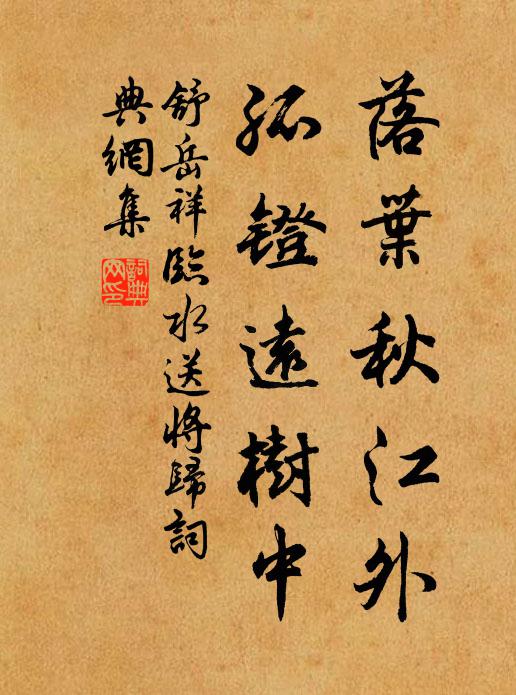 落葉秋江外
孤鐙遠樹中
舒岳祥臨水送將歸詞
典網集
詞典網印